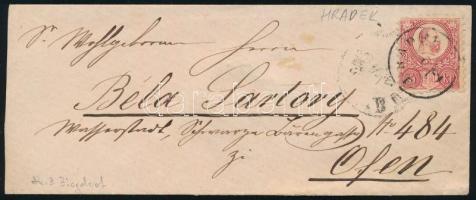 HRADEK
Sr Wohlgeboren Herrn
Béla Sartory
Wasserstadt, Schwarze Bärengasse No 484
zi
Ofen